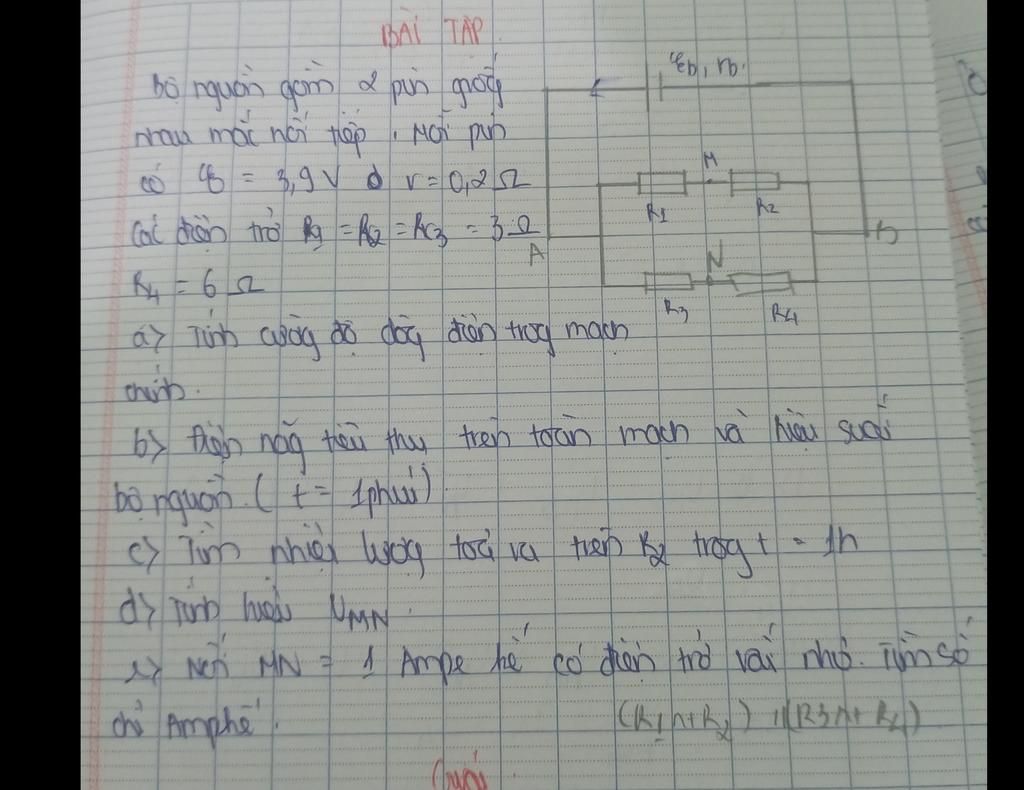 BÀI TẬP
Bộ nguồn gồm 2 pin giống
nhau mắc nối tiếp, Mỗi pin
có ξ = 3,9 V r = 0,2 Ω
Các điện trở R1 = R2 = R3 = 3 Ω
R4 = 6 Ω
a> Tính cường độ dòng điện trog mạch
chính.
b> Điện năg tiêu thụ trên toàn mạch và hiệu suất
bộ nguồn. ( t = 1phút)
c> Tìm nhiệt lượng toả ra trên R2 trog t = 1h
d> Tính hiệu UMN.
e> Nối MN = 1 Ampe kế có điện trở rất nhỏ. Tìm số
chỉ Amphê.
ξb, rb.
M
R1 R2
A B
N
R3 R4
(R1 nt R2) // (R3 nt R4)